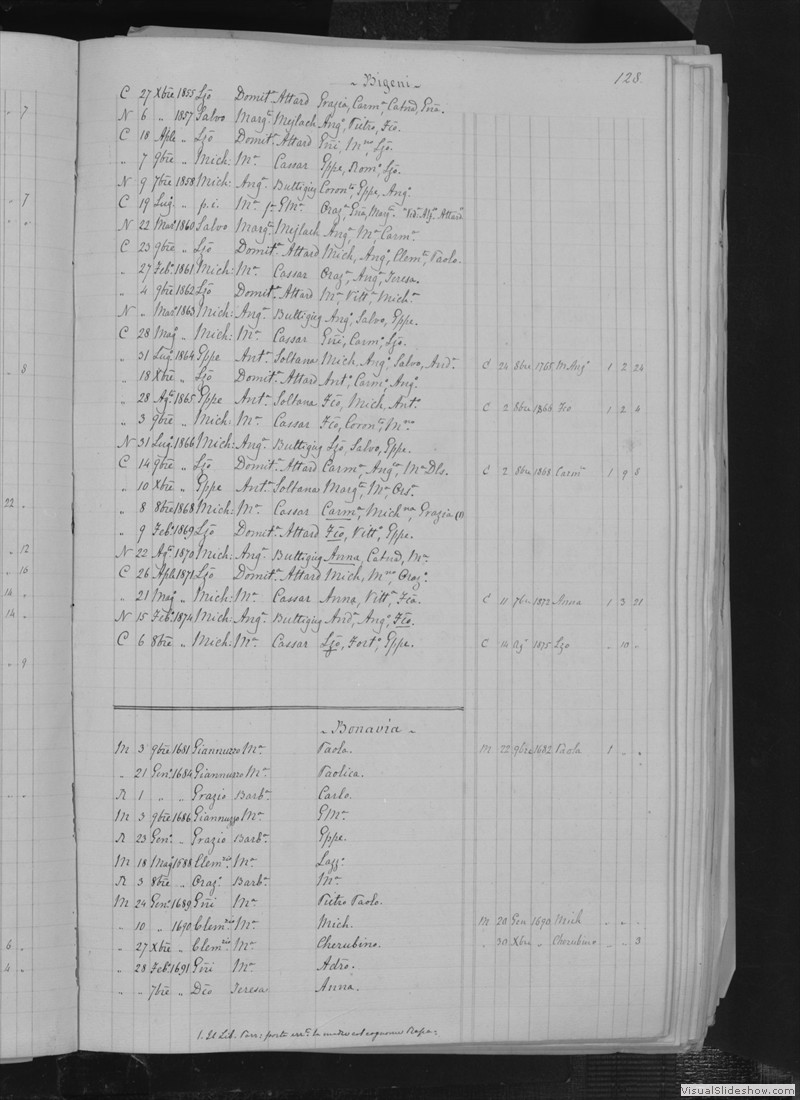 128.
Bigeni
C 27 Xbre 1855 Ljo Domit.a Attard Grazia, Carm.a, Catnd, Gni.
N 6 „ 1857 Salvo Marg.ta Mejlach Ang.o, Pietro, Fco.
C 18 Aple „ Ljo Domit.a Attard Gni, M.no, Ljo.
„ 7 9bre „ Mich: M.a Cassar Gppe, Rom.o, Ljo.
N 9 7bre 1858 Mich: Ang.a Buttigieg Coron.to, Gppe, Ang.o
C 19 Lug.o „ p.i. M.a f.a GM.a Oraz.o
N 22 Mar.o 1860 Salvo Marg.ta Mejlach Ang.o M.a Carm.a
C 23 9bre „ Ljo Domit.a Attard Mich, Ang.o, Clem.te, Paolo.
„ 27 Feb.o 1861 Mich: M.a Cassar Oraz.a, Ang.a, Teresa.
„ 4 9bre 1862 Ljo Domit.a Attard M.a, Vitt.a, Mich.a
N „ Mar.o 1863 Mich: Ang.a Buttigieg Ang.o, Salvo, Gppe.
C 28 Mag.o „ Mich: M.a Cassar Gni, Carm.o, Ljo.
„ 31 Lug.o 1864 Gppe Ant.a Soltana Mich, Ang.o, Salvo, And.a C 24 8bre 1765 M Ang.o 1 2 24
„ 18 Xbre „ Ljo Domit.a Attard Ant.o, Carm.o, Ang.o
„ 28 Ag.o 1865 Gppe Ant.a Soltana Fco, Mich, Ant.o C 2 8bre 1868 Fco 1 2 4
„ 3 9bre „ Mich: M.a Cassar Fco, Coron.to, M.no
N 31 Lug.o 1866 Mich: Ang.a Buttigieg Ljo, Salvo, Gppe.
C 14 9bre „ Ljo Domit.a Attard Carm.a, Ang.a, M.a Dls. C 2 8bre 1868 Carm.a 1 9 8
„ 10 Xbre „ Gppe Ant.a Soltana Marg.ta, M.a Crs.a
„ 8 8bre 1868 Mich: M.a Cassar Carm.a, Mich.na, Grazia (1)
„ 9 Feb.o 1869 Ljo Domit.a Attard Fco, Vitt.o, Gppe.
N 22 Ag.o 1870 Mich: Ang.a Buttigieg Anna, Catnd, M.a
C 26 Aple 1871 Ljo Domit.a Attard Mich, M.no, Oraz.o
„ 21 Mag.o „ Mich: M.a Cassar Anna, Vitt.a, Fca. C 11 7bre 1872 Anna 1 3 21
N 15 Feb.o 1874 Mich: Ang.a Buttigieg And.a, Ang.o, Fco.
C 6 8bre „ Mich: M.a Cassar Ljo, Fort.o, Gppe. C 14 Ag.o 1875 Ljo „ 10 „
Bonavia
M 3 9bre 1681 Giannuzzo M.a Paola. M 22 9bre 1682 Paola 1 „ „
„ 21 Gen.o 1684 Giannuzzo M.a Paolica.
R 1 „ „ Grazio Barb.a Carlo.
M 3 9bre 1686 Giannuzzo M.a GM.a
R 23 Gen.o „ Grazio Barb.a Gppe.
M 18 Mag.o 1688 Clem.zio M.a Lazz.o
R 3 8bre „ Oraz.o Barb.a M.a
M 24 Gen.o 1689 Gni M.a Pietro Paolo.
„ 10 „ 1690 Clem.zio M.a Mich. M 20 Gen 1690 Mich „ „ „
„ 27 Xbre „ Clem.zio M.a Cherubino. „ 30 Xbre „ Cherubino „ „ 3
„ 28 Feb.o 1691 Gni M.a Adro.
„ „ 7bre „ Dco Teresa Anna.
1. Il Lib. Parr: porta err.te la madre col cognome Rapa:
VisualSlideshow.com